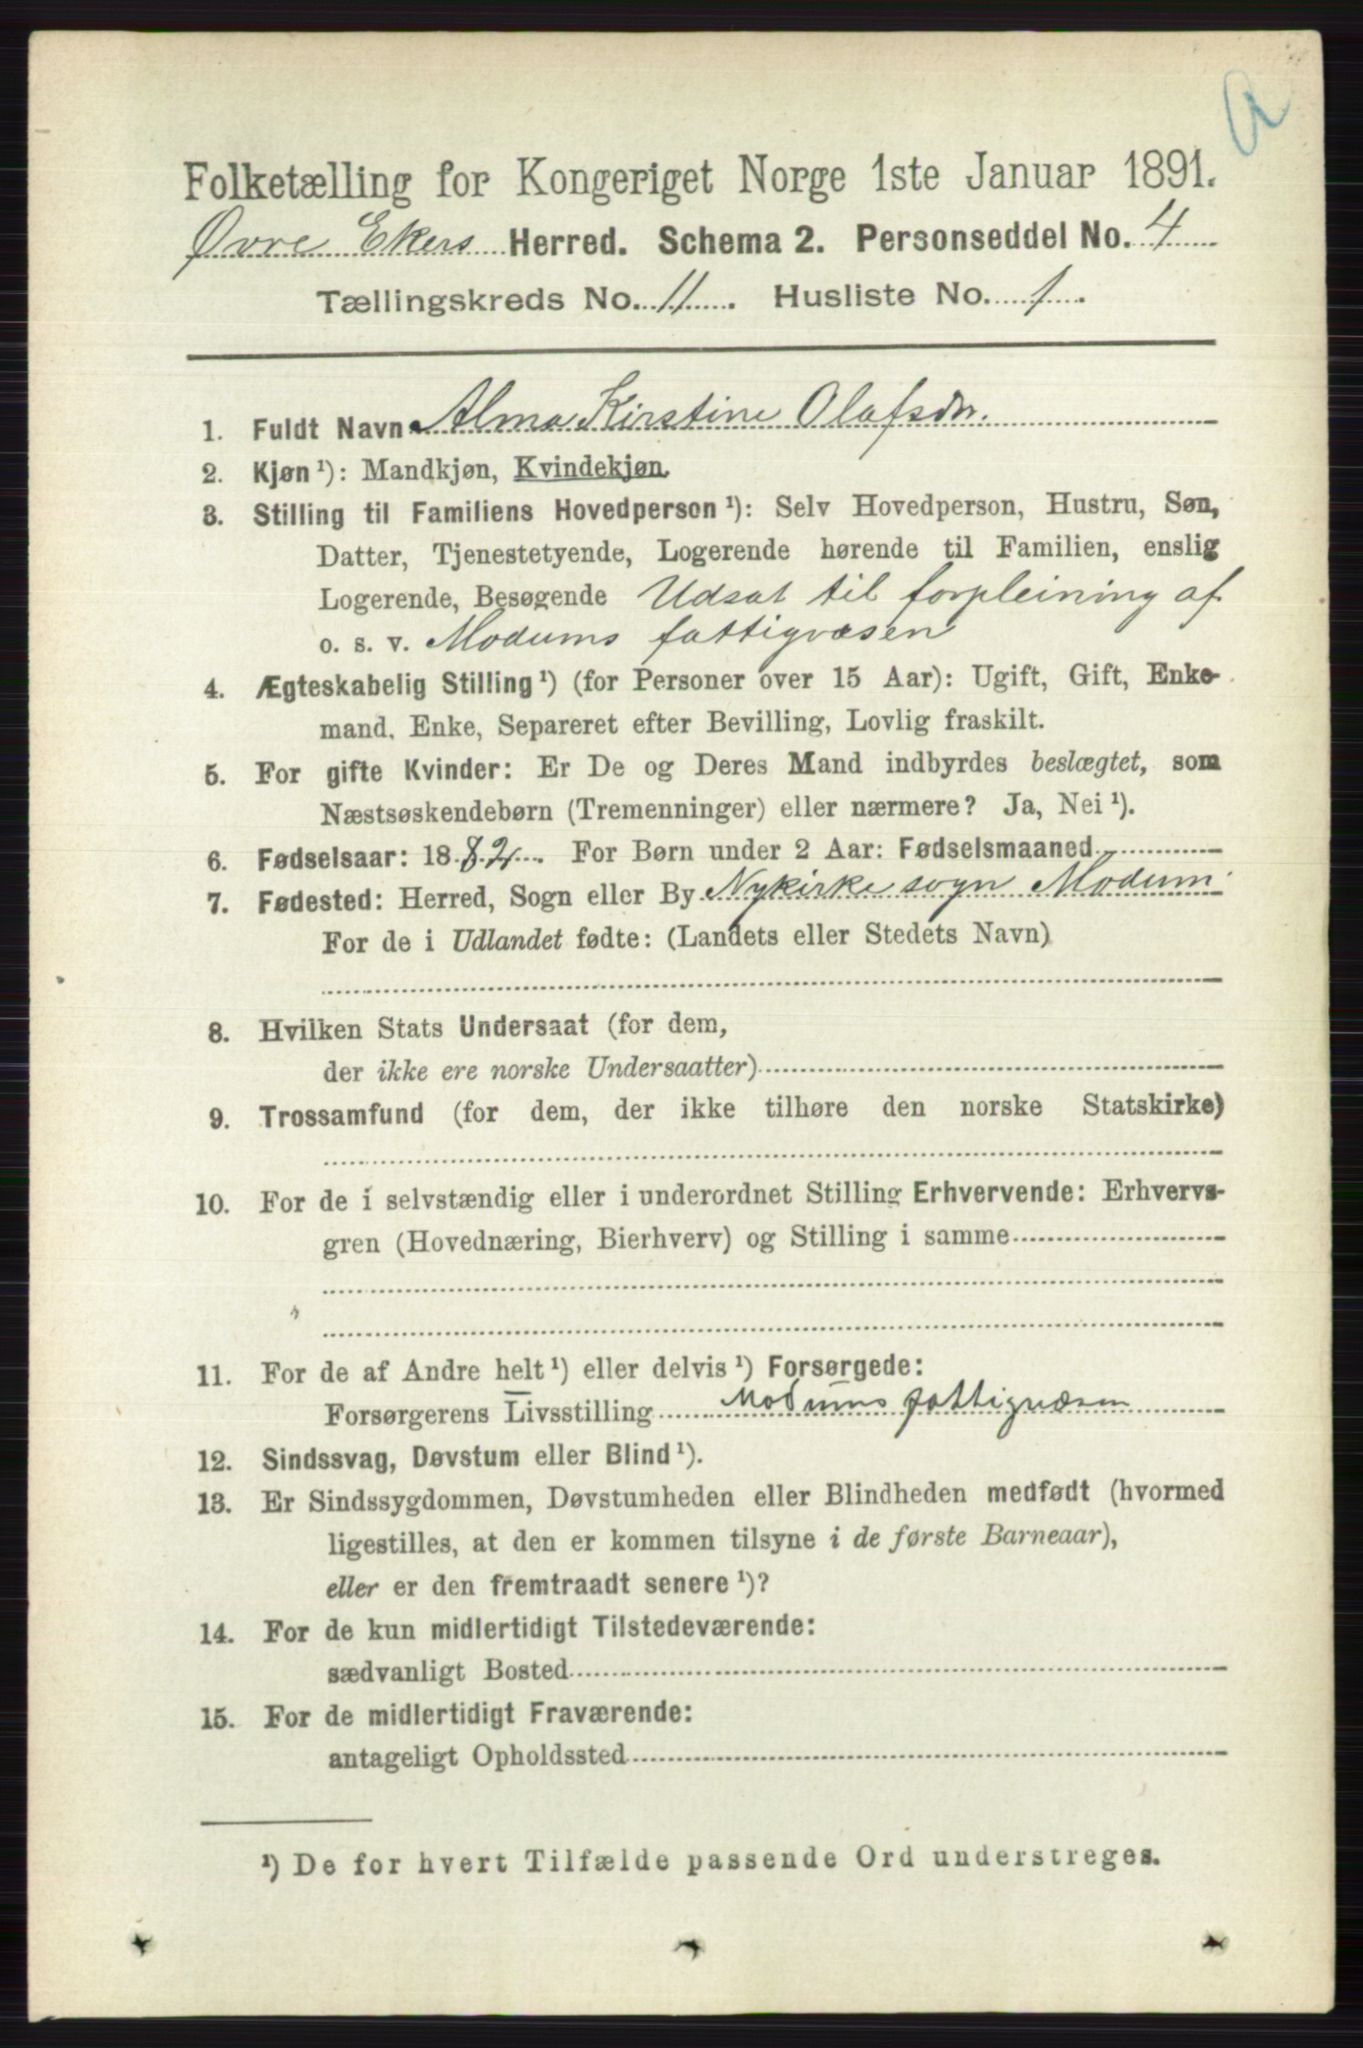 a
Folketælling for Kongeriget Norge 1ste Januar 1891.
Øvre Ekers Herred. Schema 2. Personseddel No. 4
Tællingskreds No. 11. Husliste No. 1.
1. Fuldt Navn Alma Kirstine Olafsdr.
2. Kjøn ¹): Mandkjøn, Kvindekjøn.
3. Stilling til Familiens Hovedperson ¹): Selv Hovedperson, Hustru, Søn,
Datter, Tjenestetyende, Logerende hørende til Familien, enslig
Logerende, Besøgende Udsat til forpleining af
o. s. v. Modums fattigvæsen
4. Ægteskabelig Stilling ¹) (for Personer over 15 Aar): Ugift, Gift, Enke-
mand, Enke, Separeret efter Bevilling, Lovlig fraskilt.
5. For gifte Kvinder: Er De og Deres Mand indbyrdes beslægtet, som
Næstsøskendebørn (Tremenninger) eller nærmere? Ja, Nei ¹).
6. Fødselsaar: 1882. For Børn under 2 Aar: Fødselsmaaned
7. Fødested: Herred, Sogn eller By Nykirke sogn Modum
For de i Udlandet fødte: (Landets eller Stedets Navn)
8. Hvilken Stats Undersaat (for dem,
der ikke ere norske Undersaatter)
9. Trossamfund (for dem, der ikke tilhøre den norske Statskirke)
10. For de i selvstændig eller i underordnet Stilling Erhvervende: Erhvervs-
gren (Hovednæring, Bierhverv) og Stilling i samme
11. For de af Andre helt ¹) eller delvis ¹) Forsørgede:
Forsørgerens Livsstilling Modums fattigvæsen
12. Sindssvag, Døvstum eller Blind ¹).
13. Er Sindssygdommen, Døvstumheden eller Blindheden medfødt (hvormed
ligestilles, at den er kommen tilsyne i de første Barneaar),
eller er den fremtraadt senere ¹)?
14. For de kun midlertidigt Tilstedeværende:
sædvanligt Bosted
15. For de midlertidigt Fraværende:
antageligt Opholdssted
¹) De for hvert Tilfælde passende Ord understreges.